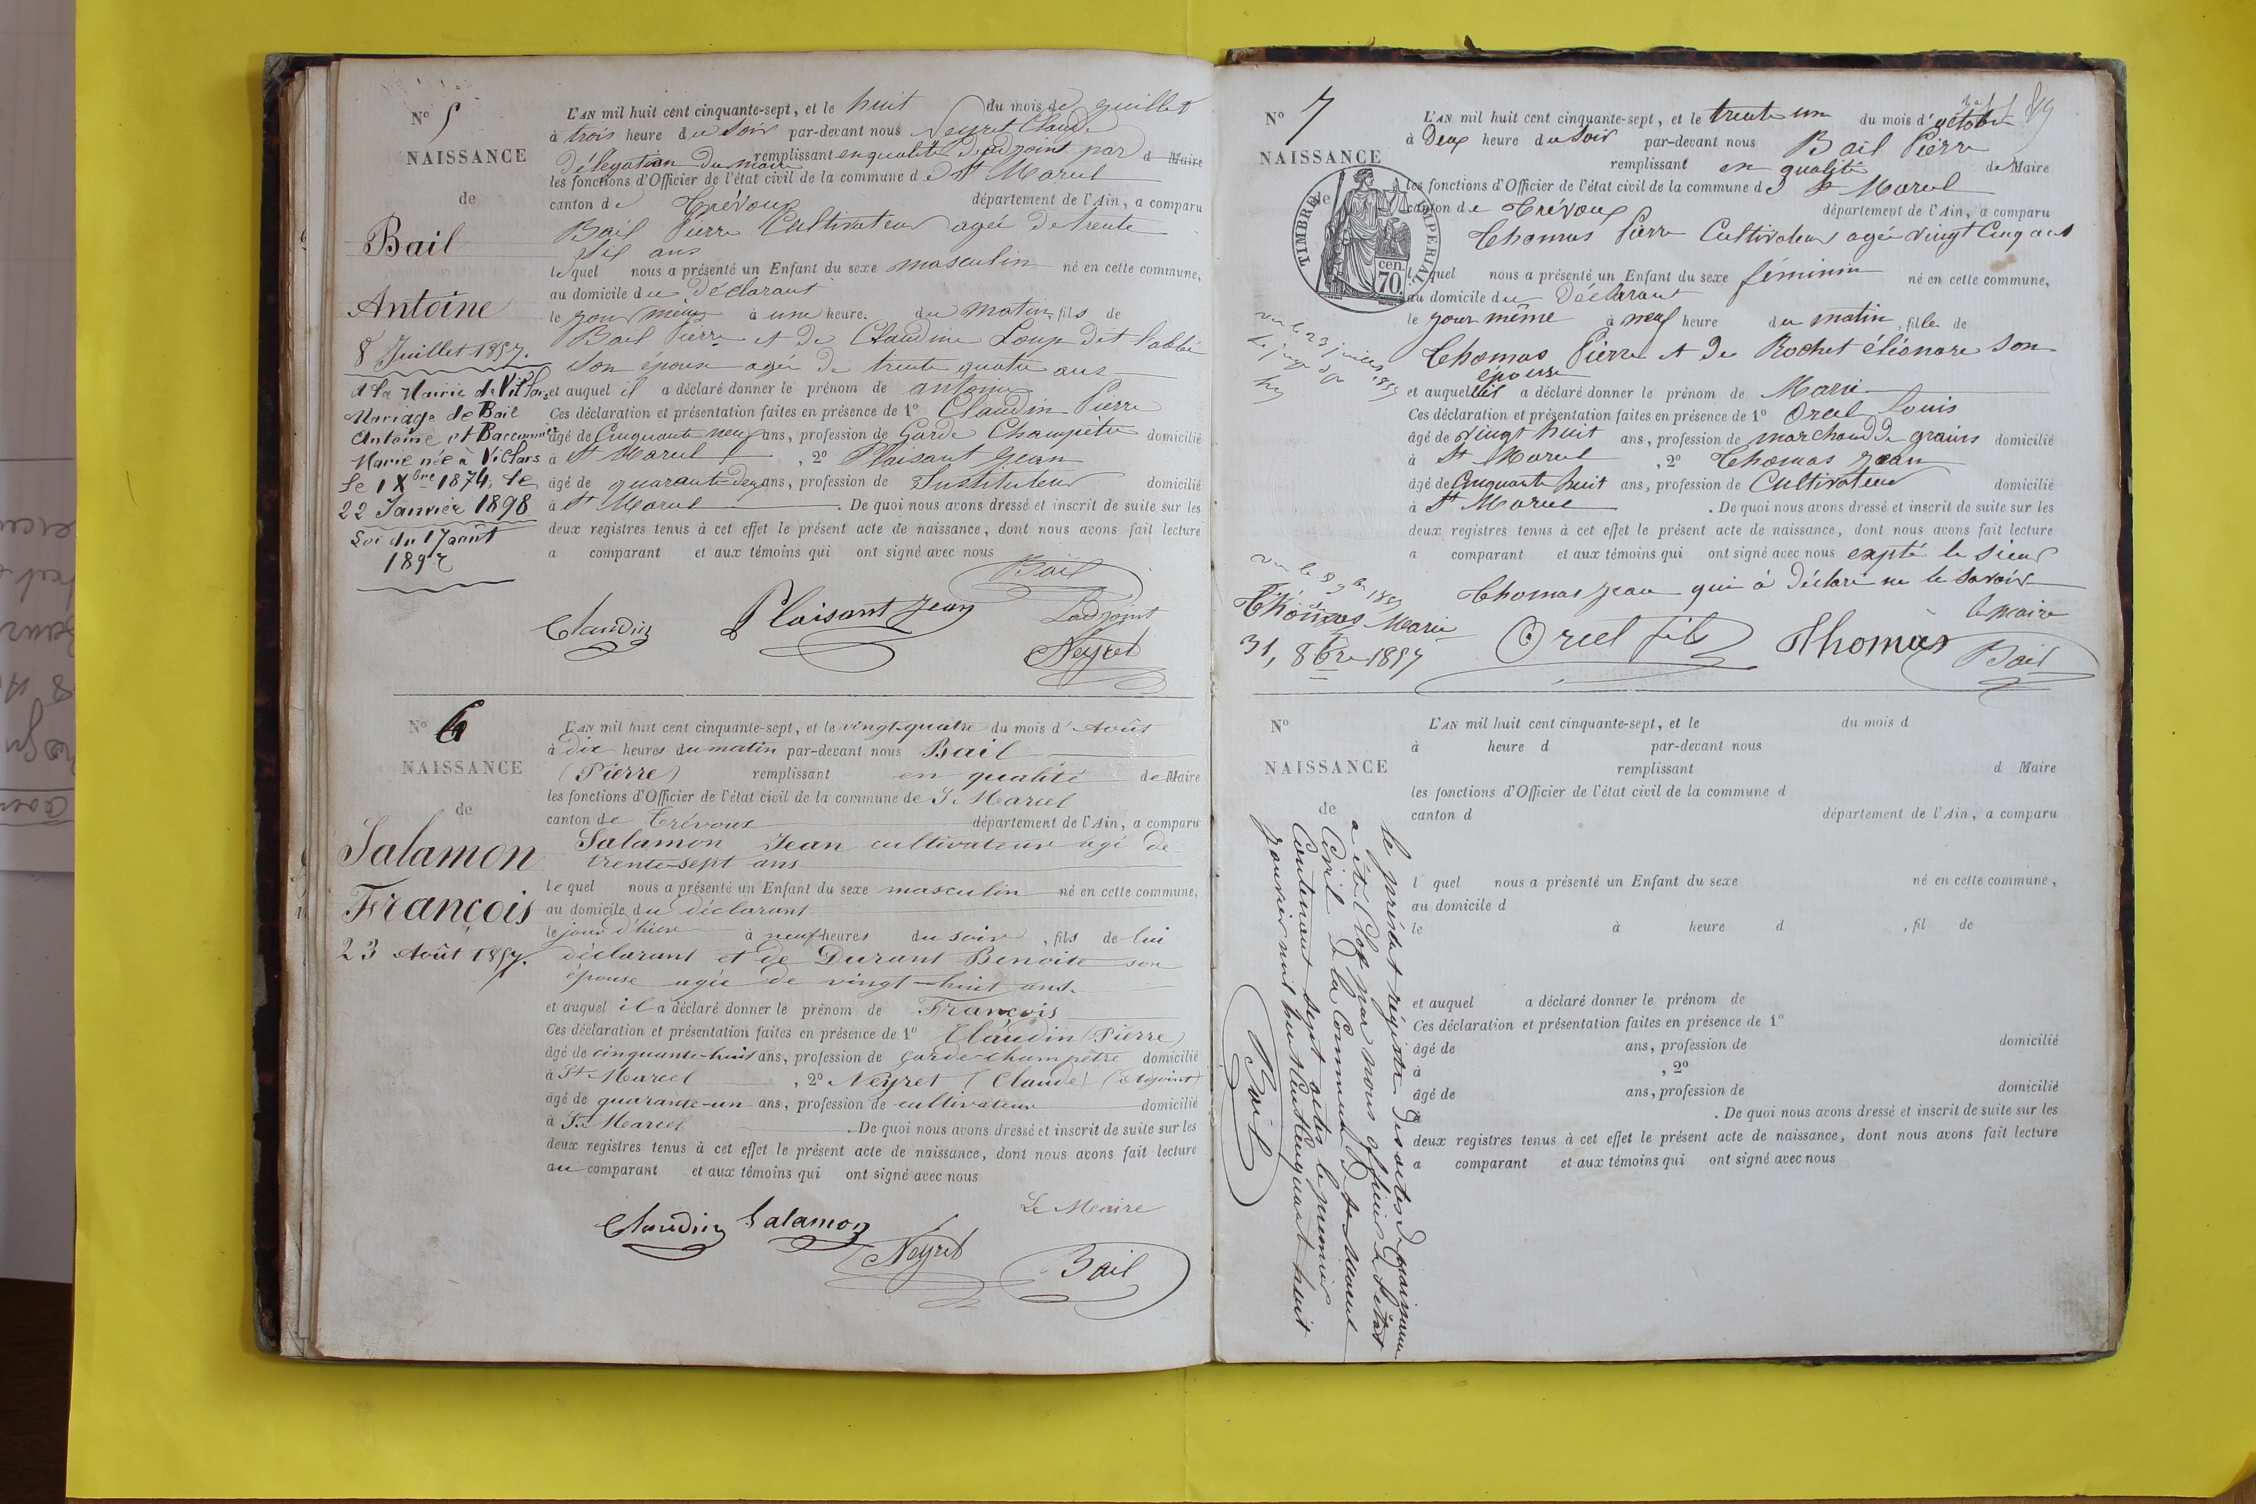 N° 5
NAISSANCE
de
Bail
Antoine
8 Juillet 1857.
A la Mairie de Villars
Mariage de Bail
Antoine et
Marie née à Villars
le 1 Xbre 1874, le
22 Janvier 1898
Loi du 17 août
1897
L'AN mil huit cent cinquante-sept, et le huit du mois de Juillet
à trois heure du Soir par-devant nous Neyret Claude
Délégation du maire remplissant en qualité d'adjoint par d Maire
les fonctions d'Officier de l'état civil de la commune de St Marcel
canton de Trévoux département de l'Ain, a comparu
Bail Pierre Cultivateur agée de trente
six ans
lequel nous a présenté un Enfant du sexe masculin né en cette commune,
au domicile du Déclarant
le jour même à une heure. du matin, fils de
Bail Pierre et de Claudine Loup dit l'abbé
Son épouse agée de trente quatre ans
et auquel il a déclaré donner le prénom de antoine
Ces déclaration et présentation faites en présence de 1° Claudin Pierre
âgé de Cinquante neuf ans, profession de Garde Champêtre domicilié
à St Marcel, 2° Plaisant Jean
âgé de quarante-deux ans, profession de Instituteur domicilié
à St Marcel. De quoi nous avons dressé et inscrit de suite sur les
deux registres tenus à cet effet le présent acte de naissance, dont nous avons fait lecture
a comparant et aux témoins qui ont signé avec nous
Bail
Claudin Plaisant Jean L'adjoint
Neyret
N° 6
NAISSANCE
de
Salamon
François
23 Août 1857.
L'AN mil huit cent cinquante-sept, et le vingt-quatre du mois d'Août
à dix heures du matin par-devant nous Bail
(Pierre) remplissant en qualité de Maire
les fonctions d'Officier de l'état civil de la commune de St Marcel
canton de Trévoux département de l'Ain, a comparu
Salamon Jean cultivateur agé de
trente-sept ans
lequel nous a présenté un Enfant du sexe masculin né en cette commune,
au domicile du déclarant
le jour d'hier à neuf heures du soir, fils de lui
déclarant et de Durant Benoite son
épouse agée de vingt-huit ans.
et auquel il a déclaré donner le prénom de François
Ces déclaration et présentation faites en présence de 1° Claudin (Pierre)
âgé de cinquante-huit ans, profession de garde-champêtre domicilié
à St Marcel, 2° Neyret (Claude) (Adjoint)
âgé de quarante-un ans, profession de cultivateur domicilié
à St Marcel. De quoi nous avons dressé et inscrit de suite sur les
deux registres tenus à cet effet le présent acte de naissance, dont nous avons fait lecture
au comparant et aux témoins qui ont signé avec nous
Le Maire
Claudin Salamon
Neyret Bail
N° 7
NAISSANCE
de
TIMBRE IMPERIAL
cen. 70.
Thomas Marie
31, 8bre 1857
L'AN mil huit cent cinquante-sept, et le trente un du mois d'octobre
à Deux heure du Soir par-devant nous Bail Pierre
remplissant en qualité de Maire
les fonctions d'Officier de l'état civil de la commune de St Marcel
canton de Trévoux département de l'Ain, a comparu
Thomas Pierre Cultivateur agée vingt Cinq ans
l quel nous a présenté un Enfant du sexe féminin né en cette commune,
au domicile du Déclarant
le jour même à neuf heure du matin, fille de
Thomas Pierre et de Rochet éléonore son
épouse
et auquel il a déclaré donner le prénom de Marie
Ces déclaration et présentation faites en présence de 1° Orcel Louis
âgé de vingt huit ans, profession de marchand de grains domicilié
à St Marcel, 2° Thomas Jean
âgé de Cinquante huit ans, profession de Cultivateur domicilié
à St Marcel. De quoi nous avons dressé et inscrit de suite sur les
deux registres tenus à cet effet le présent acte de naissance, dont nous avons fait lecture
a comparant et aux témoins qui ont signé avec nous expté le sieur
Thomas Jean qui à déclaré ne le Savoir
le Maire
Orcel fils Thomas Bail
N°
NAISSANCE
de
L'AN mil huit cent cinquante-sept, et le du mois d
à heure d par-devant nous
remplissant d Maire
les fonctions d'Officier de l'état civil de la commune d
canton d département de l'Ain, a comparu
l quel nous a présenté un Enfant du sexe né en cette commune,
au domicile d
le à heure d, fil de
et auquel a déclaré donner le prénom de
Ces déclaration et présentation faites en présence de 1°
âgé de ans, profession de domicilié
à, 2°
âgé de ans, profession de domicilié
à. De quoi nous avons dressé et inscrit de suite sur les
deux registres tenus à cet effet le présent acte de naissance, dont nous avons fait lecture
a comparant et aux témoins qui ont signé avec nous
le présent régistre des actes de naissance
a été Clos par nous officier de l'état
Civil de la Commune de St Marcel
Contenant sept actes le premier
janvier mil huit Cent Cinquante huit
Bail